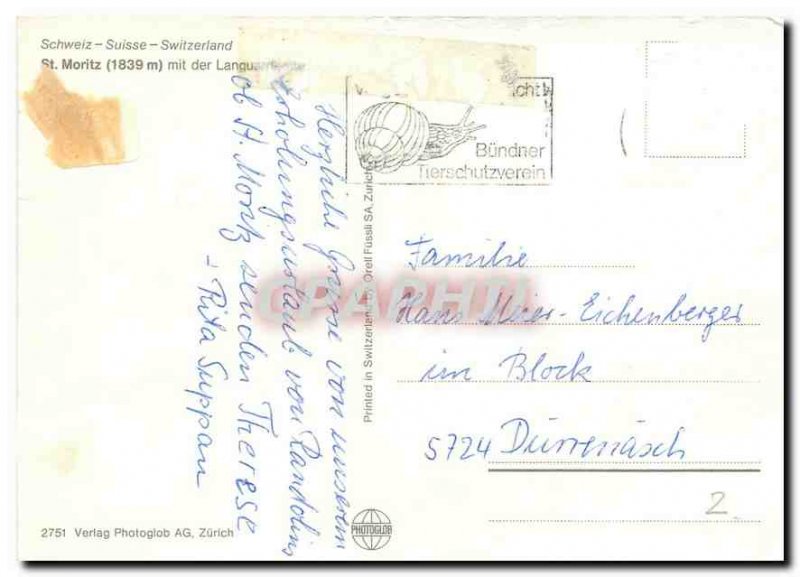 Schweiz – Suisse – Switzerland
St. Moritz (1839 m) mit der
Herzliche Grüsse von unserem
Erholungsurlaub von Randolins
ob St. Moritz senden Therese
– Rita Suppan
Bündner
Tierschutzverein
Printed in Switzerland by Orell Füssli SA, Zurich
Familie
Hans Meier-Eichenberger
im Block
5724 Dürrenäsch
2.
GRAPHTI
PHOTOGLOB
2751 Verlag Photoglob AG, Zürich